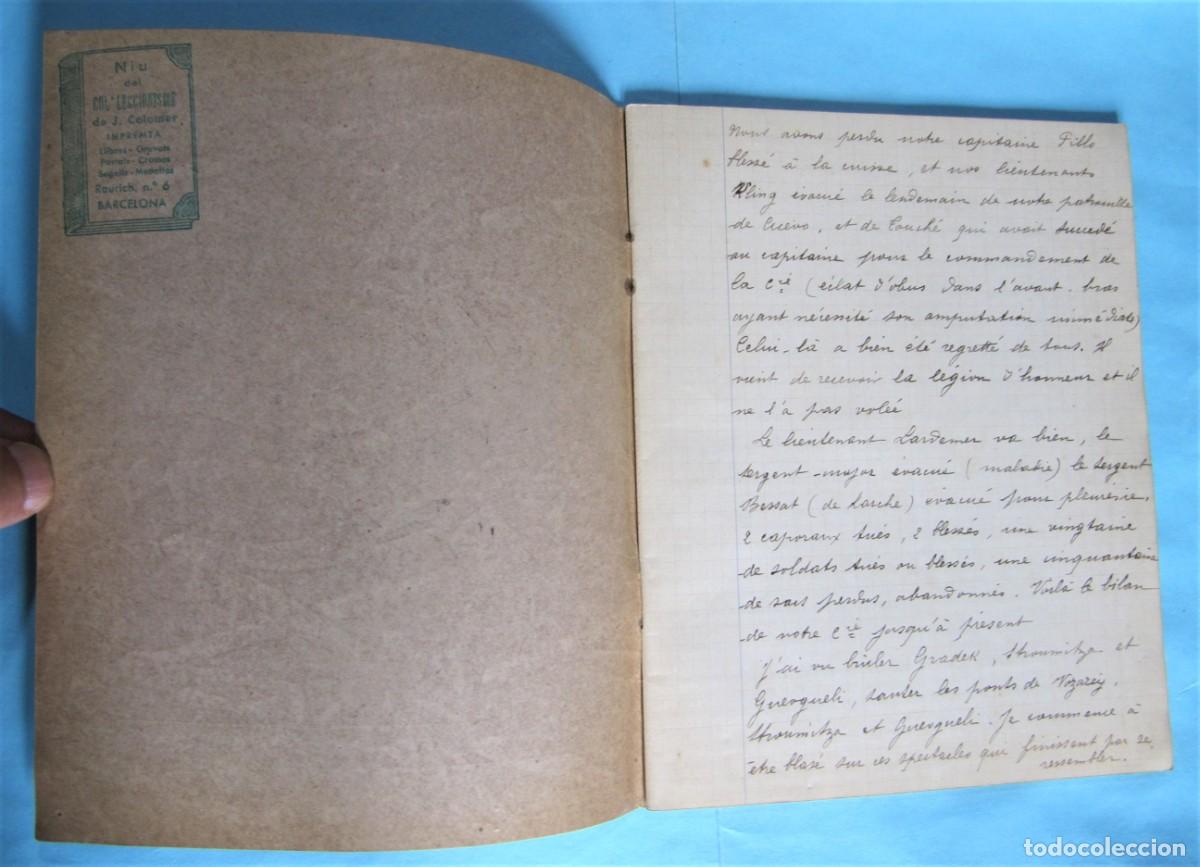 Niu
del
COL·LECCIONISME
de J. Colomer
IMPREMTA
Llibres - Gravats
Postals - Cromos
Segells - Medalles
Raurich, n.º 6
BARCELONA
Nous avons perdu notre capitaine Fillo
blessé à la cuisse, et nos lieutenants
Kling évacué le lendemain de notre patrouille
de Cuevo, et de Touché qui avait succedé
au capitaine pour le commandement de
la Cie (éclat d'obus dans l'avant-bras
ayant nécessité son amputation immédiate)
Celui-là a bien été regretté de tous. Il
vient de recevoir la légion d'honneur et il
ne l'a pas volée
Le lieutenant Lardemer va bien, le
sergent-major évacué (maladie) le sergent
Bessat (de Larche) évacué pour pleurésie,
2 caporaux tués, 2 blessés, une vingtaine
de soldats tués ou blessés, une cinquantaine
de sacs perdus, abandonnés. Voilà le bilan
de notre Cie jusqu'à présent
J'ai vu brûler Gradek, Stroumitza et
Guevgueli, sauter les ponts de Vozarey,
Stroumitza et Guevgueli. Je commence à
être blasé sur ces spectacles que finissent par se
ressembler.
todocoleccion